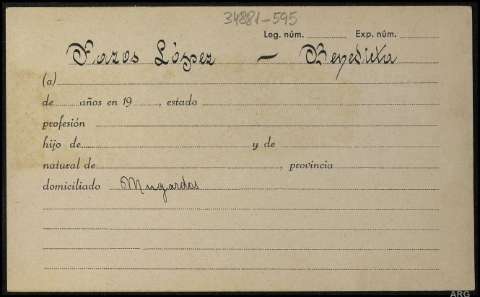 34881-595
Log. núm. Exp. núm.
Pazos López — Benedicta
(a)
de años en 19 , estado
profesión
hijo de y de
natural de , provincia
domiciliado Mugardos
ARG